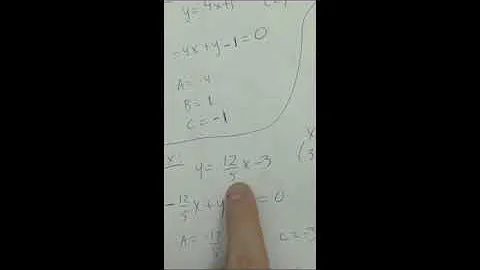 y=4x+1
-4x+y-1=0
A=-4
B=1
C=-1
y=12/5x-3
-12/5x+y =0
A=-12/5
C=-3
x
(3